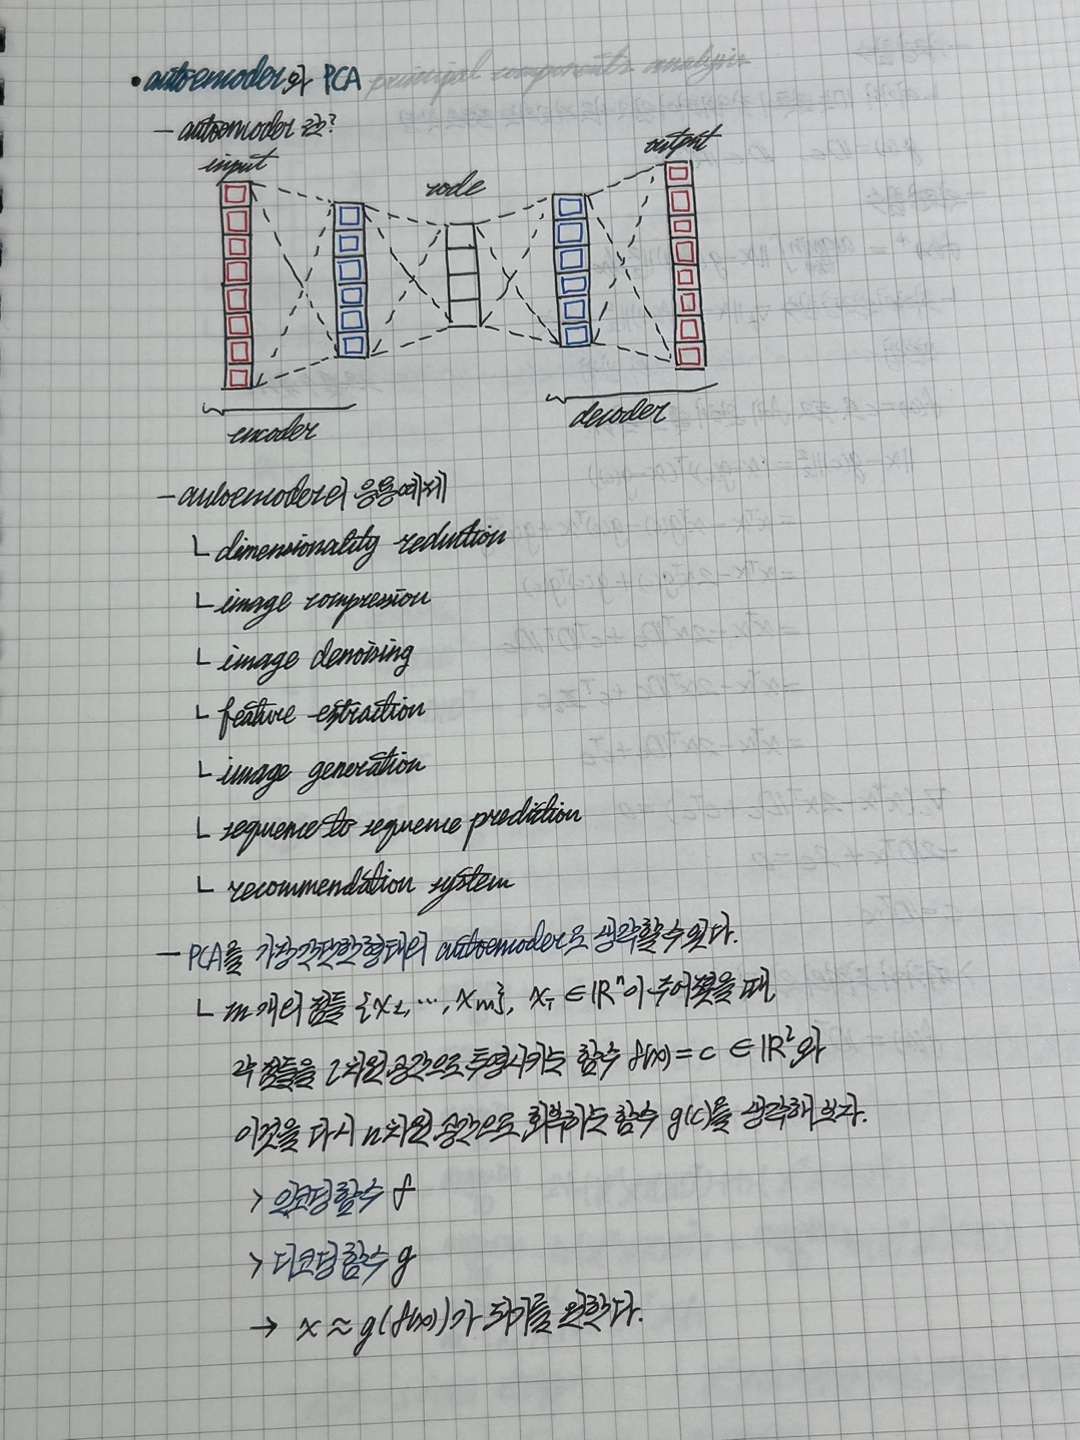 • autoencoder와 PCA principal components analysis
- autoencoder란?
input
code
output
encoder
decoder
- autoencoder의 응용예제
└ dimensionality reduction
└ image compression
└ image denoising
└ feature extraction
└ image generation
└ sequence to sequence prediction
└ recommendation system
- PCA를 가장 간단한 형태의 autoencoder로 생각할 수 있다.
└ m개의 점들 {x₁, ⋯, xₘ}, xᵢ ∈ ℝⁿ이 주어졌을 때,
각 점들을 l차원 공간으로 투영시키는 함수 f(x) = c ∈ ℝˡ와
이것을 다시 n차원 공간으로 회복하는 함수 g(c)를 생각해 보자.
> 인코딩 함수 f
> 디코딩 함수 g
→ x ≈ g(f(x))가 되기를 원한다.